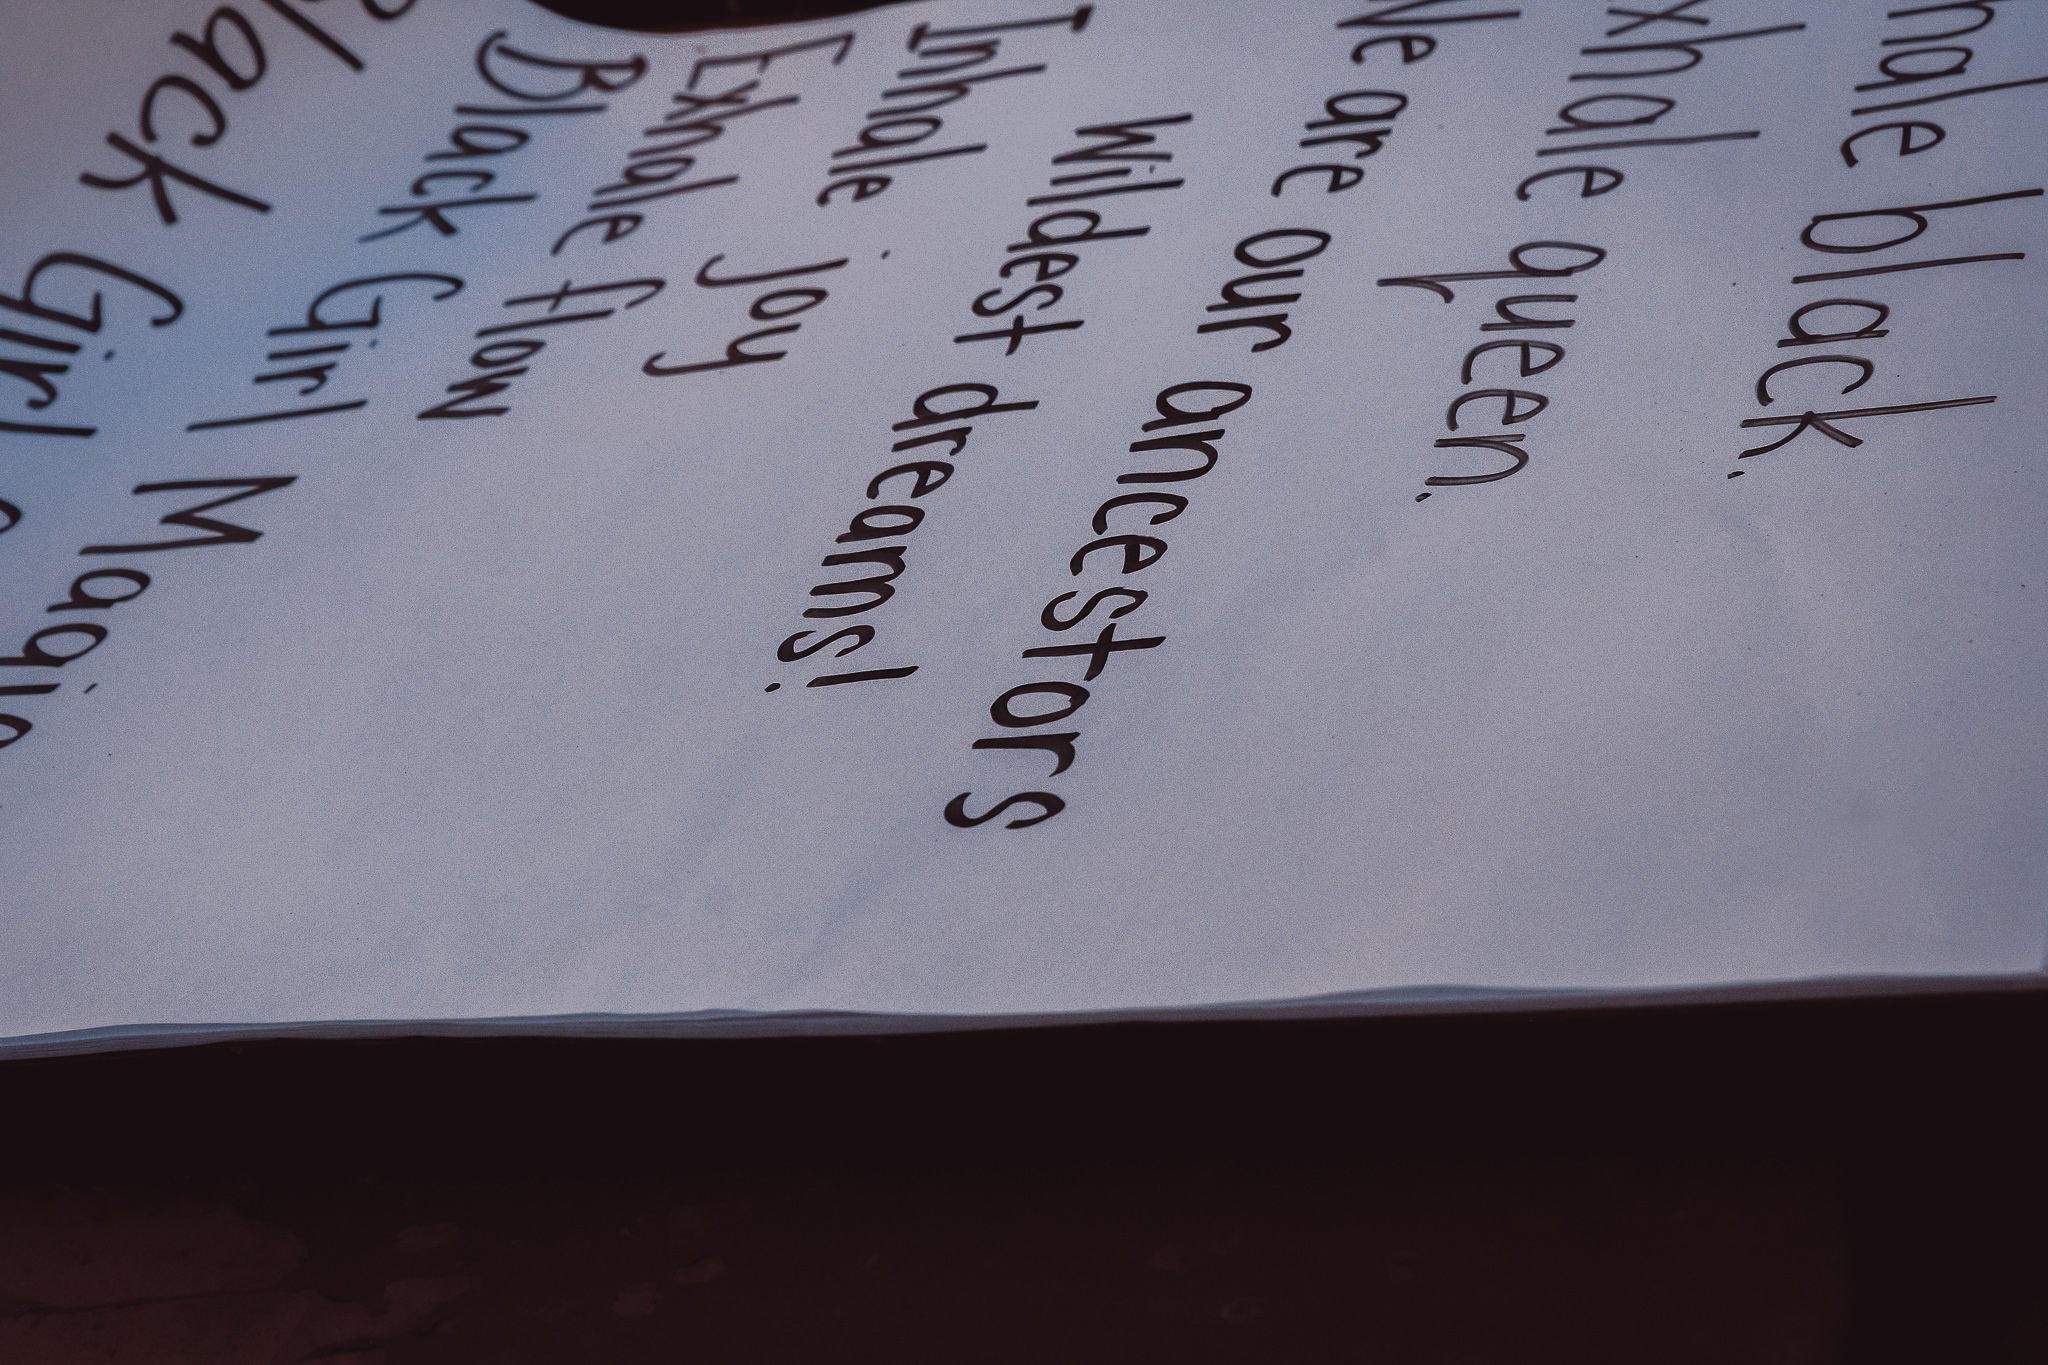 nhale black.
xhale queen.
We are our ancestors
Wildest dreams!
Inhale Joy
Exhale flow
Black Girl Magic
Black Girl